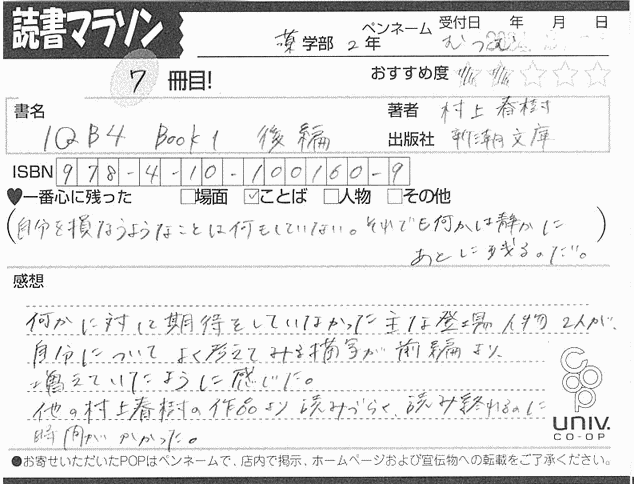 読書マラソン
薬学部 2年 ペンネーム むつむ 受付日 年 月 日
7 冊目!
おすすめ度 ☆☆☆☆☆
書名 1Q84 Book1 後編
著者 村上春樹
出版社 新潮文庫
ISBN 978-4-10-100160-9
♥一番心に残った □場面 ☑ことば □人物 □その他
(自分を損なうようなことは何もしていない。それでも何かは静かに
あとに残るのだ。)
感想
何かに対して期待をしていなかった主な登場人物2人が、
自分についてよく考えてみる描写が前編より、
増えていたように感じた。
他の村上春樹の作品より読みづらく、読み終れるのに
時間がかかった。
coop
UNIV.
CO-OP
●お寄せいただいたPOPはペンネームで、店内で掲示、ホームページおよび宣伝物への転載をご了承ください。